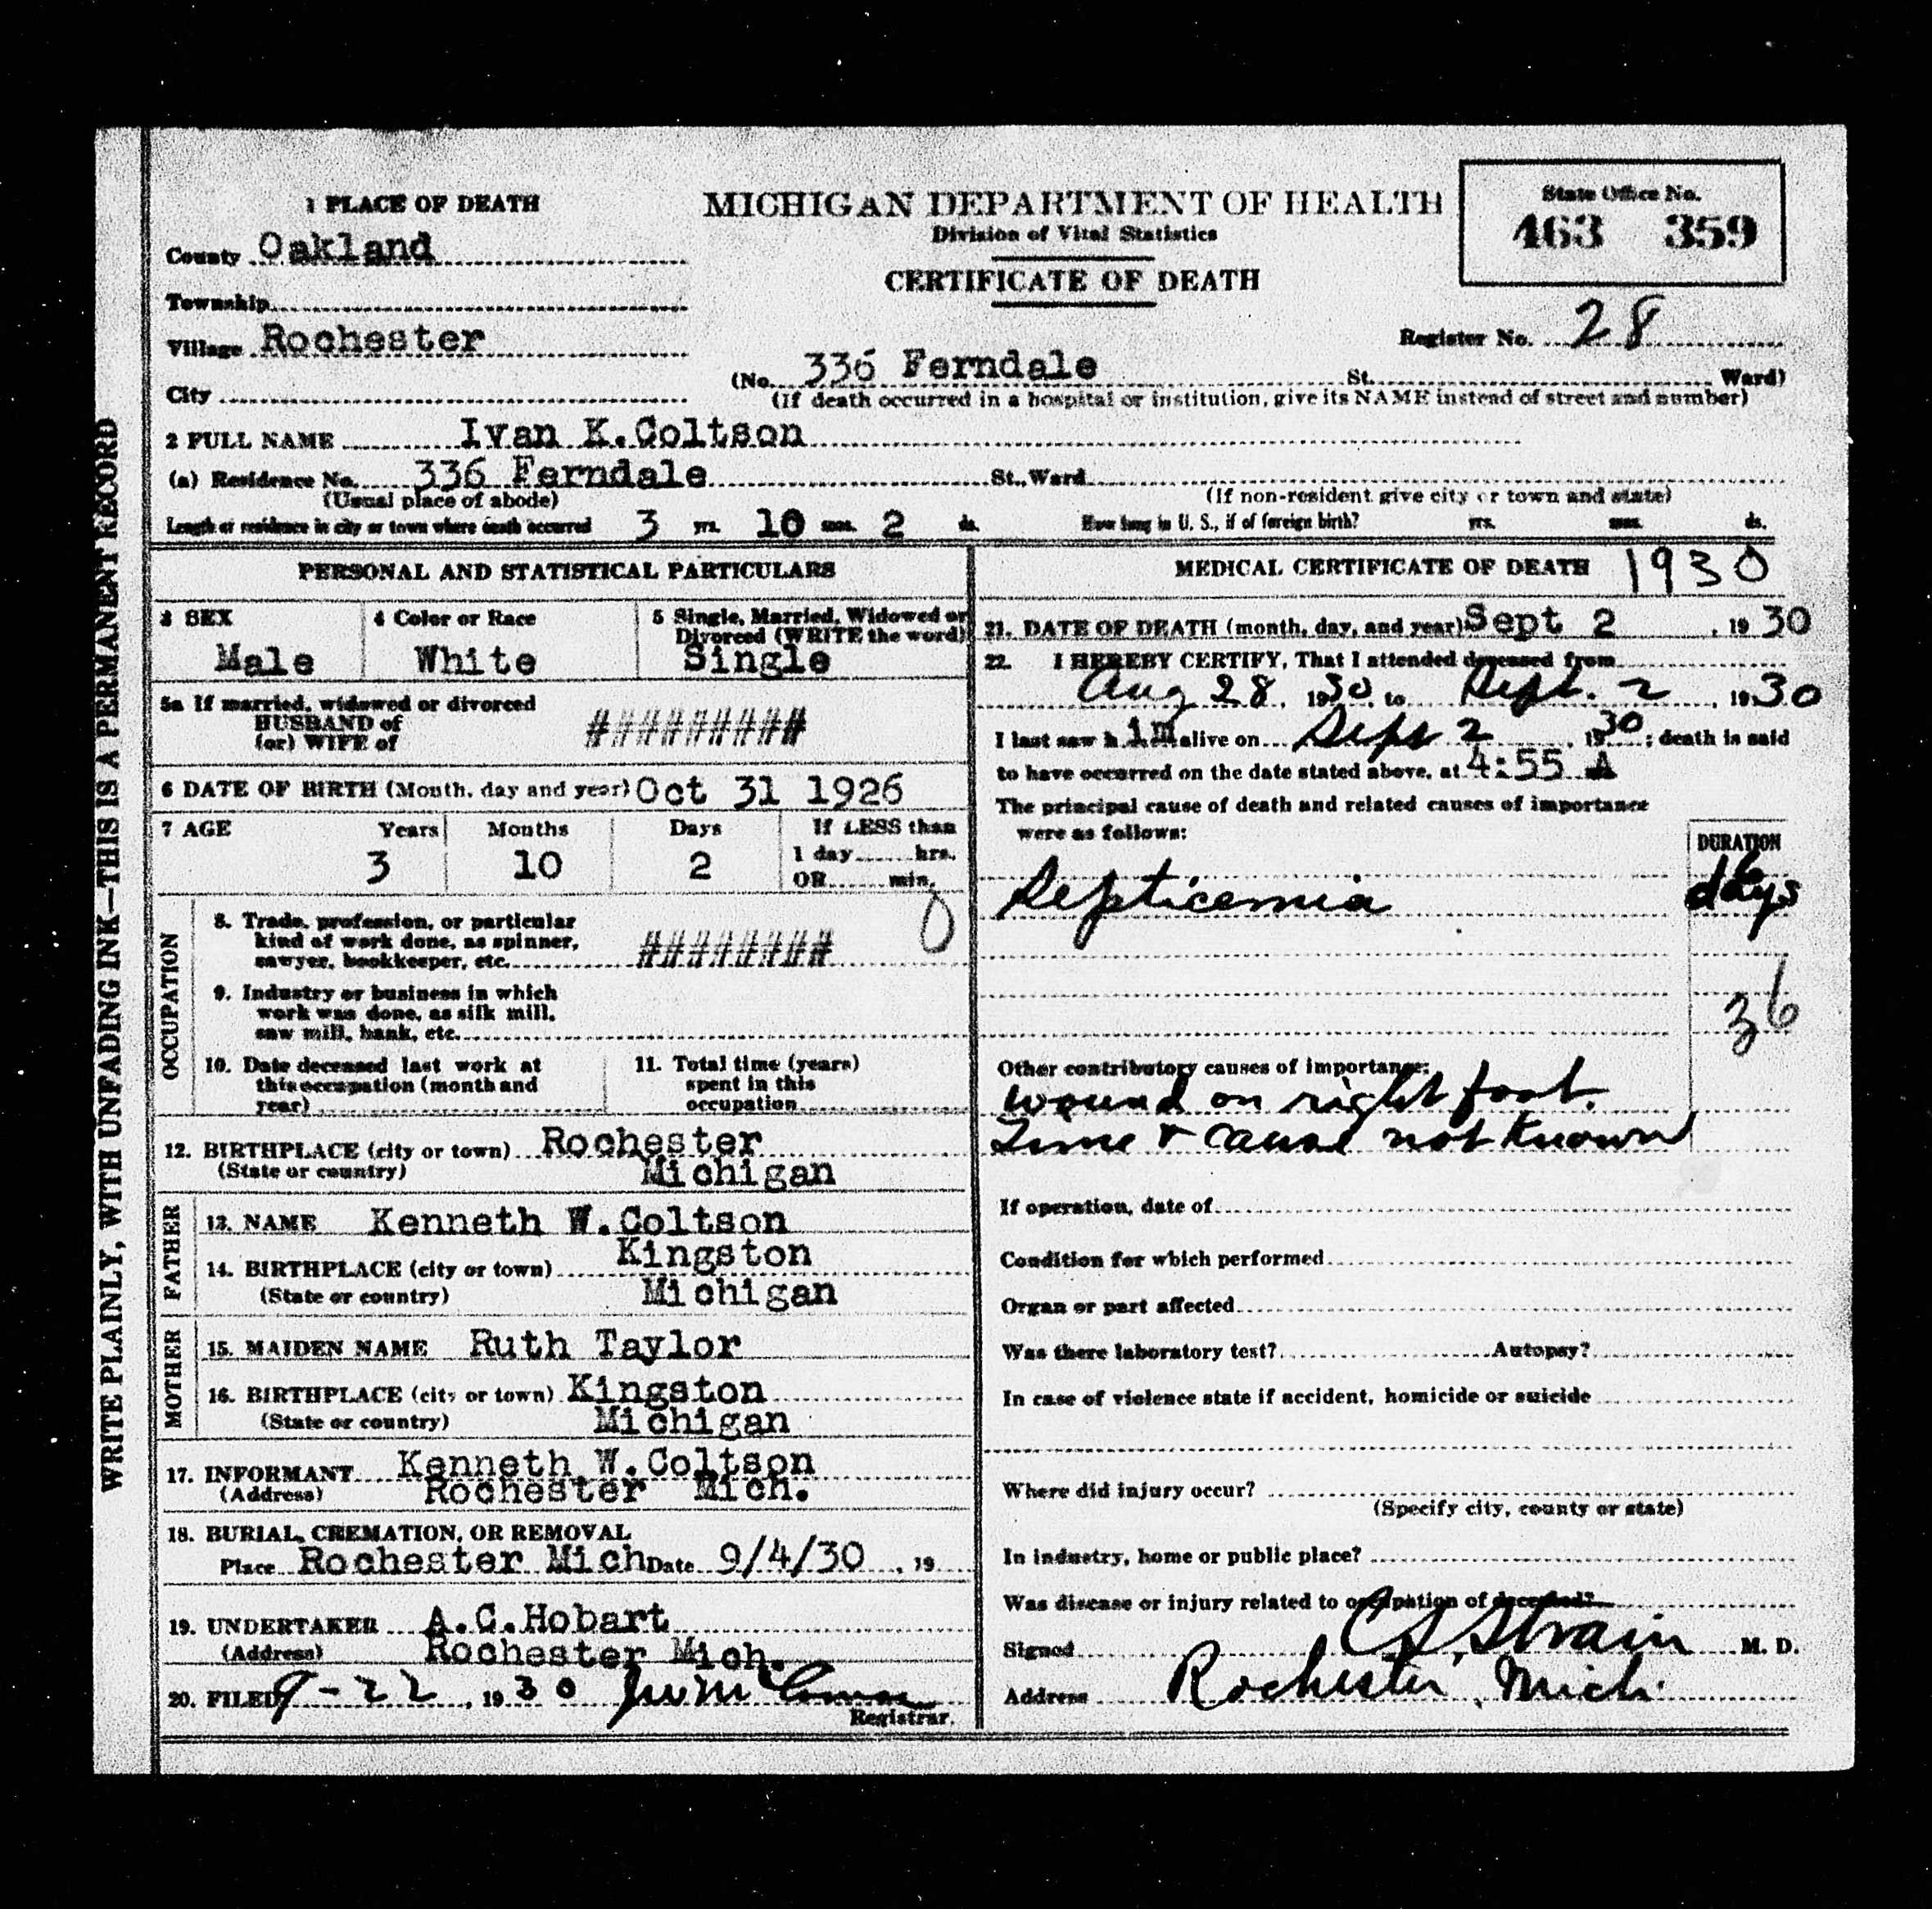 WRITE PLAINLY, WITH UNFADING INK—THIS IS A PERMANENT RECORD
1 PLACE OF DEATH
County Oakland
Township
Village Rochester
City
MICHIGAN DEPARTMENT OF HEALTH
Division of Vital Statistics
CERTIFICATE OF DEATH
State Office No.
463 359
Register No. 28
(No. 336 Ferndale St. Ward)
(If death occurred in a hospital or institution, give its NAME instead of street and number)
2 FULL NAME Ivan K.Coltson
(a) Residence No. 336 Ferndale St., Ward
(Usual place of abode)
(If non-resident give city or town and state)
Length of residence in city or town where death occurred 3 yrs. 10 mos. 2 ds. How long in U. S., if of foreign birth? yrs. mos. ds.
PERSONAL AND STATISTICAL PARTICULARS
3 SEX
Male
4 Color or Race
White
5 Single, Married, Widowed or
Divorced (WRITE the word)
Single
5a If married, widowed or divorced
HUSBAND of
(or) WIFE of
#########
6 DATE OF BIRTH (Month, day and year) Oct 31 1926
7 AGE Years Months Days If LESS than
3 10 2 1 day hrs.
OR min.
0
OCCUPATION
8. Trade, profession, or particular
kind of work done, as spinner,
sawyer, bookkeeper, etc. ########
9. Industry or business in which
work was done, as silk mill,
saw mill, bank, etc.
10. Date deceased last work at
this occupation (month and
year)
11. Total time (years)
spent in this
occupation
12. BIRTHPLACE (city or town) Rochester
(State or country) Michigan
FATHER
13. NAME Kenneth W.Coltson
14. BIRTHPLACE (city or town) Kingston
(State or country) Michigan
MOTHER
15. MAIDEN NAME Ruth Taylor
16. BIRTHPLACE (city or town) Kingston
(State or country) Michigan
17. INFORMANT Kenneth W.Coltson
(Address) Rochester Mich.
18. BURIAL, CREMATION, OR REMOVAL
Place Rochester Mich Date 9/4/30, 19
19. UNDERTAKER A.C.Hobart
(Address) Rochester Mich.
20. FILED 9-22, 1930
Registrar.
MEDICAL CERTIFICATE OF DEATH 1930
21. DATE OF DEATH (month, day, and year) Sept 2, 1930
22. I HEREBY CERTIFY, That I attended deceased from
Aug 28, 1930, to Sept. 2, 1930
I last saw him alive on Sept 2, 1930; death is said
to have occurred on the date stated above, at 4:55 A
The principal cause of death and related causes of importance
were as follows:
DURATION
Septicemia 6 days
36
Other contributory causes of importance:
Wound on right foot.
Time & cause not known
If operation, date of
Condition for which performed
Organ or part affected
Was there laboratory test? Autopsy?
In case of violence state if accident, homicide or suicide
Where did injury occur?
(Specify city, county or state)
In industry, home or public place?
Was disease or injury related to occupation of deceased?
Signed Strain M. D.
Address Rochester, Mich.